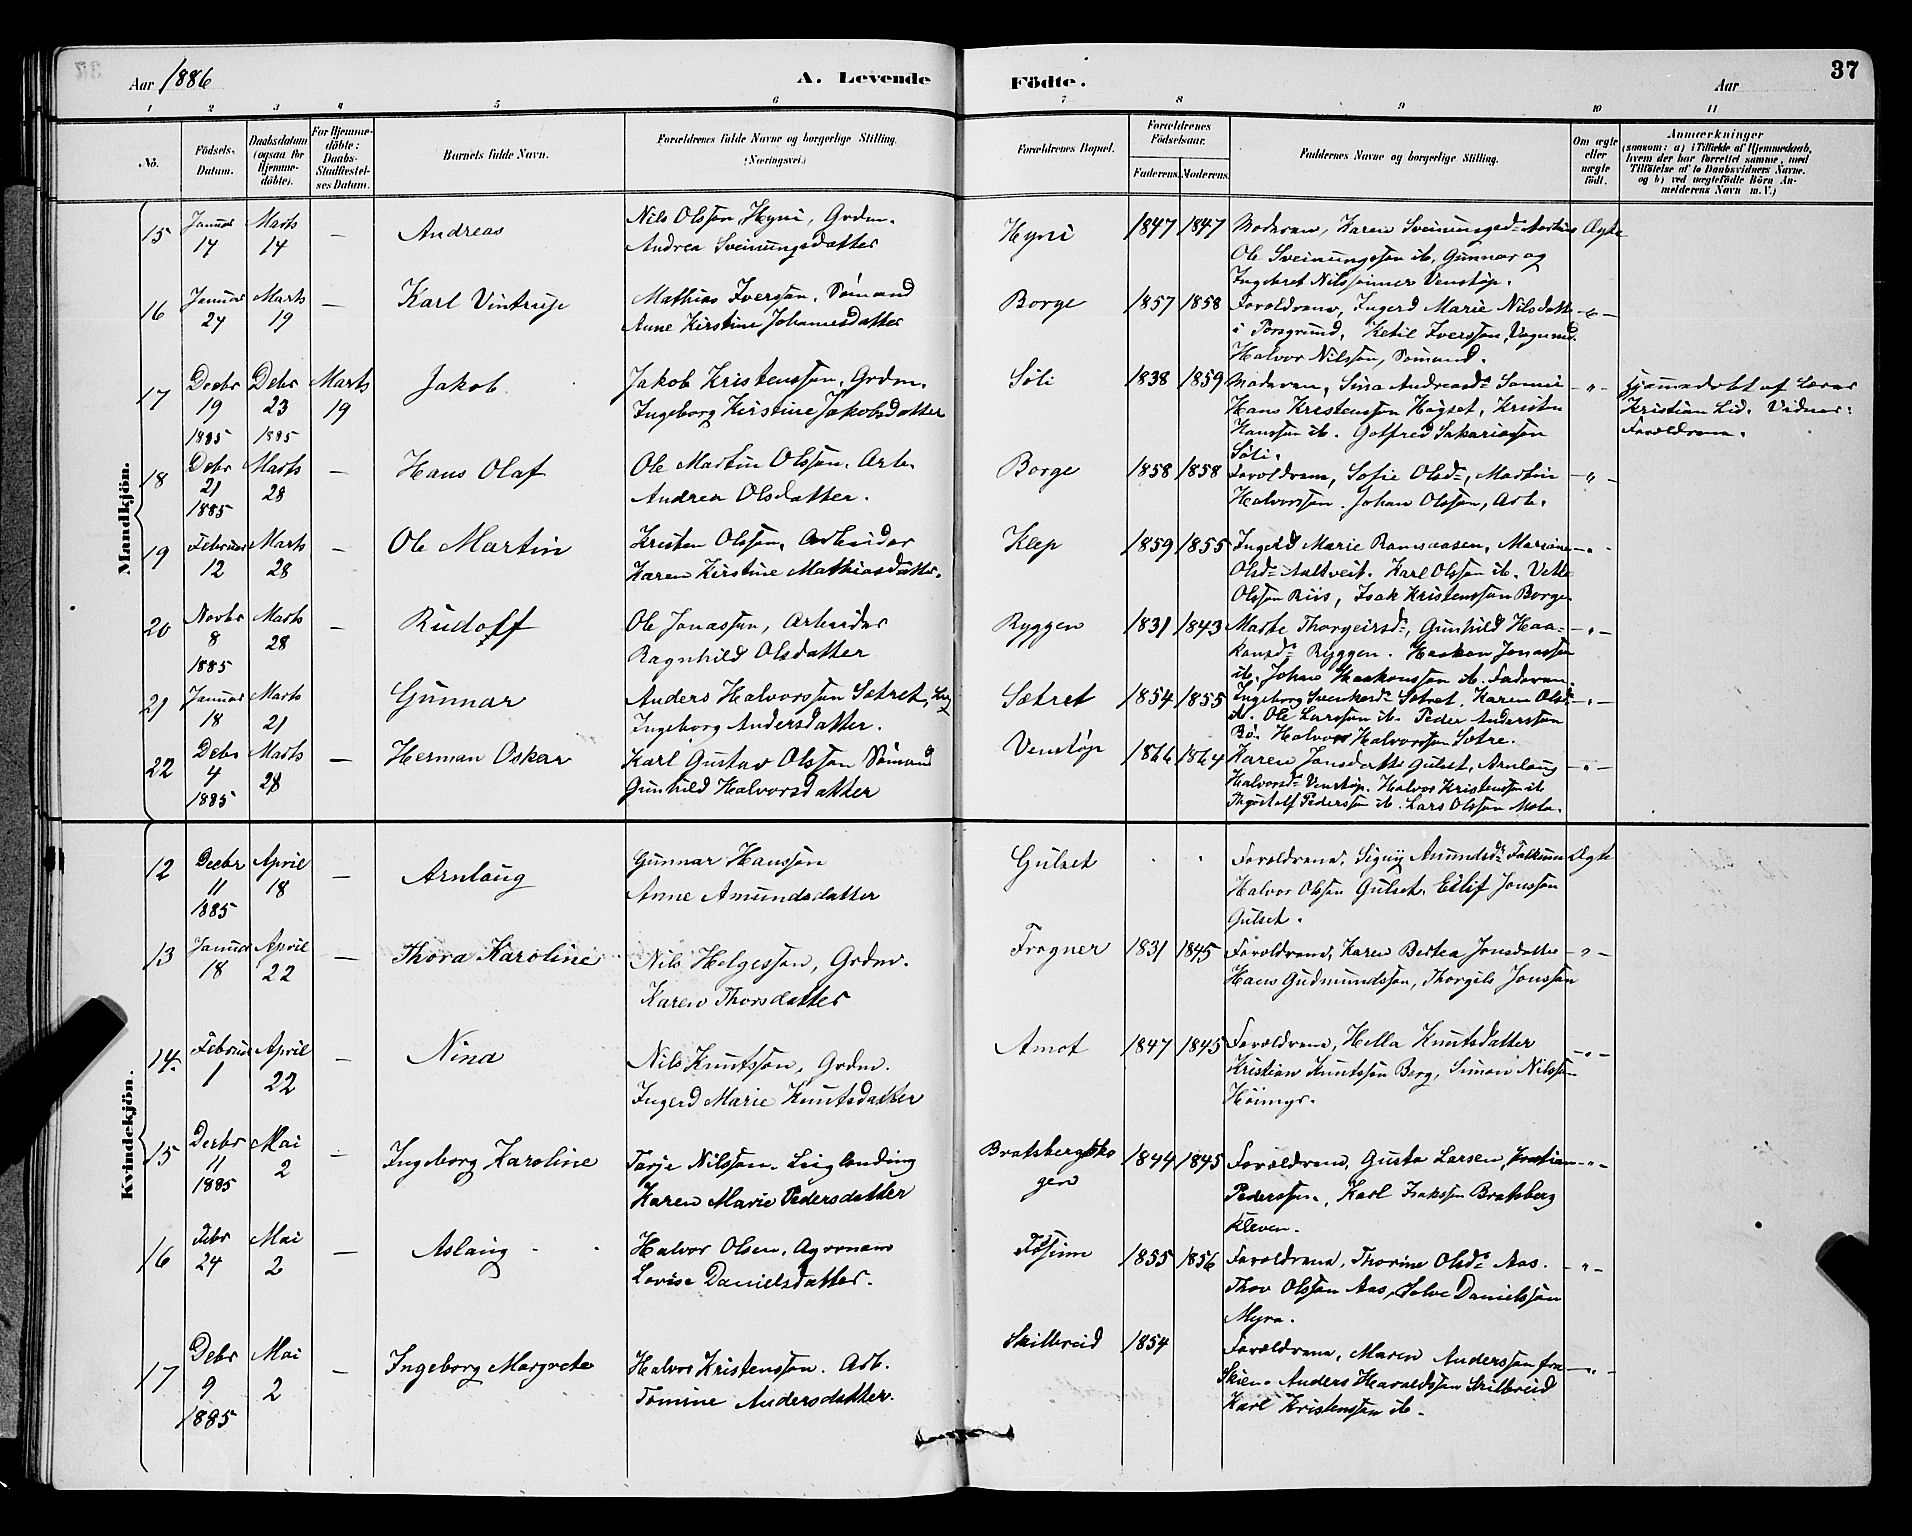 Aar 1886
A. Levende Födte.
Aar
37
1 2 3 4 5 6 7 8 9 10 11
No.
Födsels-Datum.
Daabsdatum (ogsaa for Hjemme-döbte).
For Hjemme-döbte: Daabs-Stadfæstel-ses Datum.
Barnets fulde Navn.
Forældrenes fulde Navne og borgerlige Stilling. (Næringsvei.)
Forældrenes Bopæl.
Forældrenes Födselsaar.
Faderens. Moderens.
Faddernes Navne og borgerlige Stilling.
Om ægte eller uægte födt.
Anmærkninger
(saasom: a) i Tilfælde af Hjemmedaab, hvem der har forrettet samme, med Tilföielse af to Daabsvidners Navne, og b) ved uægtefödte Börn An-melderens Navn m. V.)
Mandkjön.
15 Januar 14 Marts 14 — Andreas
Nils Olsson Hyni, Grdm.
Andrea Sveinungsdatter
Hyni 1847 1847
Moderen, Karen Sveinungsd.
Ole Sveinungsson ib. Gunnar og
Ingebret Nilssønner Venstøp.
Ægte
16 Januar 24 Marts 19 — Karl
Mathias Iversson, Sømand
Anne Kirstine Johannesdatter
Borge 1857 1858
Forældrene, Ingerd Marie Nilsdatter
i Porsgrund, Ketil Iversson,
Halvor Nilsson, Sømand.
—"—
17 Decbr 19 1885 Debr 23 1885 Marts 19 Jakob
Jakob Kristensson, Grdm.
Ingeborg Kirstine Jakobsdatter
Søli 1838 1859
Moderen, Sina Andreasd.
Hans Kristensson Høgset, Kristen
Hansson ib. Gotfred Sakariasson
Søli.
"
Hjemmedøbt af Lærer
Kristian Lid. Vidner:
Forældrene.
18 Debr 21 1885 Marts 28 — Hans Olaf
Ole Martin Olsson, Arb.
Andrea Olsdatter.
Borge 1858 1858
Forældrene, Sofie Olsd., Martin
Halvorsson. Johan Olsson, Arb.
—"—
19 Februar 12 Marts 28 — Ole Martin
Kristen Olsson, Arbeider
Karen Kirstine Mathiasdatter.
Klep 1859 1855
Ingerd Marie Ramsaasen, Mariane
Olsd. Aaltveit. Karl Olsson ib. Vetle
Olsson Riis, Isak Kristensson Borge
—"—
20 Novbr 8 1885 Marts 28 — Rudolf
Ole Jonasson, Arbeider
Ragnhild Olsdatter
Ryggen 1831 1843
Marte Thorgeirsd., Gunhild Haa-
konsd. Ryggen. Haakon Jonasson
ib. Johns Haakonsson ib. Faderen.
—"—
21 Januar 18 Marts 21 — Gunnar
Anders Halvorsson Sætret,
Ingeborg Andersdatter.
Sætret 1854 1855
Ingeborg Svenkesd. Sætret. Karen Olsd.
ib. Ole Larsson ib. Peder Andersson
Bø. Halvor Halvorsson Sætre.
—"—
22 Debr 4 1885 Marts 28 — Herman Oskar
Karl Gustav Olsson Sømand
Gunhild Halvorsdatter
Venstøp 1866 1864
Karen Jonsdatter Gulset, Arnlaug
Halvorsd. Venstøp. Halvor Kristensson ib.
Pedersson ib. Lars Olsson Mola.
—"—
Kvindekjön.
12 Decbr 11 1885 April 18 — Arnlaug
Gunnar Hansson
Anne Amundsdatter
Gulset " "
Forældrene, Signy Amundsd. Falkum
Halvor Olsson Gulset, Eilif Jonsson
Gulset.
Ægte
13 Januar 18 April 22 — Thora Karoline
Nils Helgesson, Grdm.
Karen Thorsdatter
Frogner 1831 1845
Forældrene, Karen Bertea Jonsdatter
Hans Gudmundsson, Thorgils Jonsson
—"—
14. Februar 1 April 22 — Nina
Nils Knutsson, Grdm.
Ingerd Marie Knutsdatter
Amot 1847 1845
Forældrene, Hella Knutsdatter
Kristian Knutsson Berg, Simon Nilsson
—"—
15 Decbr 11 1885 Mai 2 — Ingeborg Karoline
Tarje Nilsson, Leilending
Karen Marie Pedersdatter
Bratsbergsko
gen
1844 1845
Forældrene, Gusta Larsen,
Pedersson, Karl Isaksson Bratsberg
kleven.
—"—
16 Febr 24 Mai 2 — Aslaug
Halvor Olsen, Agronom
Lovise Danielsdatter.
Fossum 1855 1856
Forældrene, Thorine Olsd. Aas.
Thor Olsson Aas, Solve Danielsson
Myra.
—"—
17 Debr 9 1885 Mai 2 — Ingeborg Margrete
Halvor Kristensson. Arb.
Tomine Andersdatter.
Skilbreid 1854
Forældrene, Maren Andersson fra
Skien. Anders Haraldsson Skilbreid
Karl Kristensson ib.
—"—